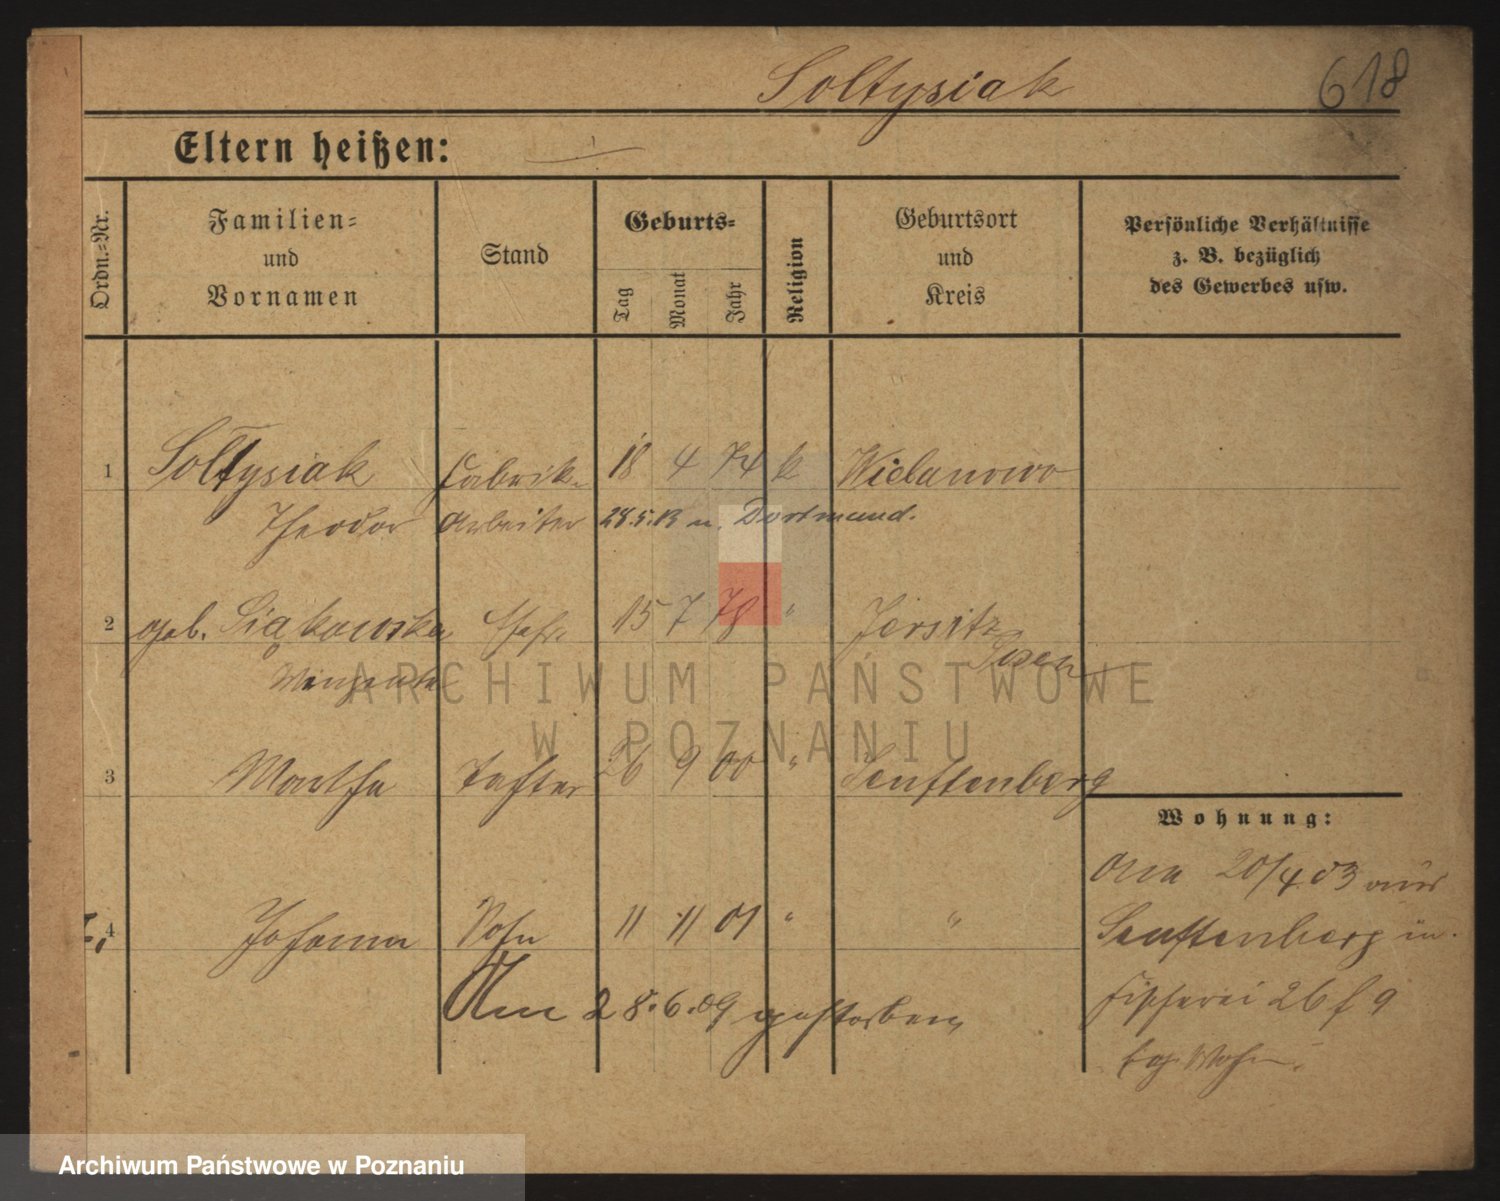 Soltysiak 618
Eltern heißen:
Ordn.=Nr.
Familien=
und
Vornamen
Stand
Geburts=
Tag
Monat
Jahr
Religion
Geburtsort
und
Kreis
Persönliche Verhältnisse
z. B. bezüglich
des Gewerbes usw.
1 Soltysiak Fabrik- 18 4 74 k Wielanowo
Theodor Arbeiter 28.5.13 n. Dortmund.
2 geb. Siąkowska Ehefr. 15 7 78 " Jersitz
Posen
ARCHIWUM PAŃSTWOWE
W POZNANIU
3 Martha Tochter 26 9 00 " Senftenberg
Wohnung:
4 Johann Sohn 11 11 01 " "
Am 28.6.09 gestorben
Am 20/4 03 aus
Senftenberg in
Fischerei 26 f 9
Archiwum Państwowe w Poznaniu